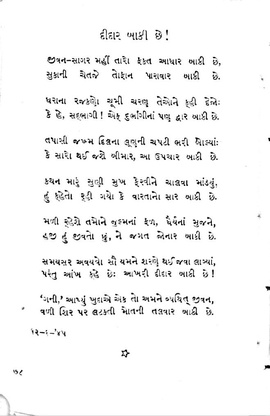 દીદાર બાકી છે!
જીવન-સાગર મહીં તારો ફકત આધાર બાકી છે,
સુકાની ચેતજે તોફાન પારાવાર બાકી છે.
ધરાના રજકણો ચૂમી ચરણ તેઓને કહી દેજો:
કે હે, સદ્ભાગી! એક દુર્ભાગીનાં પણ દ્વાર બાકી છે.
તપાસી જખ્મ દિલના લૂણની ચપટી ભરી બોલ્યાં:
કે સારો થઈ જશે બીમાર, આ ઉપચાર બાકી છે.
કથન મારું સુણી મુખ ફેરવીને ચાલવા માંડ્યું,
હું કહેતો રહી ગયો કે વારતાનો સાર બાકી છે.
મળી રહેશે તમોને જુલ્મનાં ફળ, ધૈર્યનાં મુજને,
હજી હું જીવતો છું, ને જગત જોનાર બાકી છે.
સમયસર અવયવો સૌ યમને શરણે થઈ જવા લાગ્યાં,
પરંતુ આંખ કહે છે: આખરી દીદાર બાકી છે!
'ગની,' આપ્યું ખુદાએ એક તો અમને વ્યથિત જીવન,
વળી શિર પર લટકતી મોતની તલવાર બાકી છે.
૧૨-૬-'૪૫
૭૮